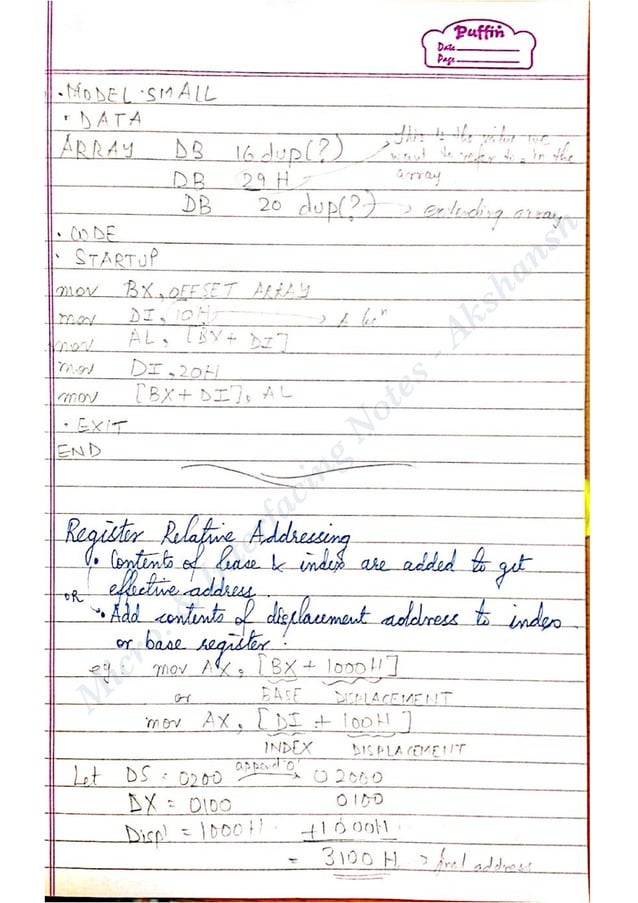 Puffin
Date
Page
.MODEL.SMALL
.DATA
ARRAY DB 16 dup(?)
This is the value we
want to refer to, in the
array
DB 29H
DB 20 dup(?) → extending array
.CODE
.STARTUP
mov BX, OFFSET ARRAY
mov DI, 10H
mov AL, [BX+DI]
mov DI, 20H
mov [BX+DI], AL
.EXIT
END
Register Relative Addressing
• Contents of base & index are added to get
effective address.
OR
• Add contents of displacement address to index
or base register.
eg. mov AX, [BX + 1000H]
or BASE DISPLACEMENT
mov AX, [DI + 100H]
INDEX DISPLACEMENT
Let DS = 0200 append '0' → 02000
DX = 0100 0100
Displ = 1000H +1000H
= 3100 H → final address
facing Notes - Akshansh
Micro